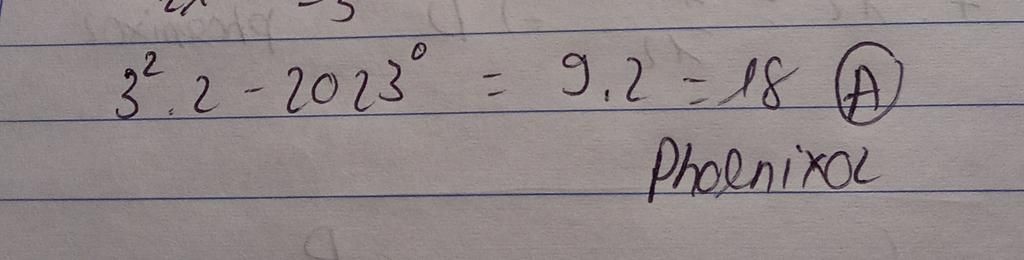 3². 2 - 2023⁰ = 9.2 = 18 Ⓐ
Phoenixoc